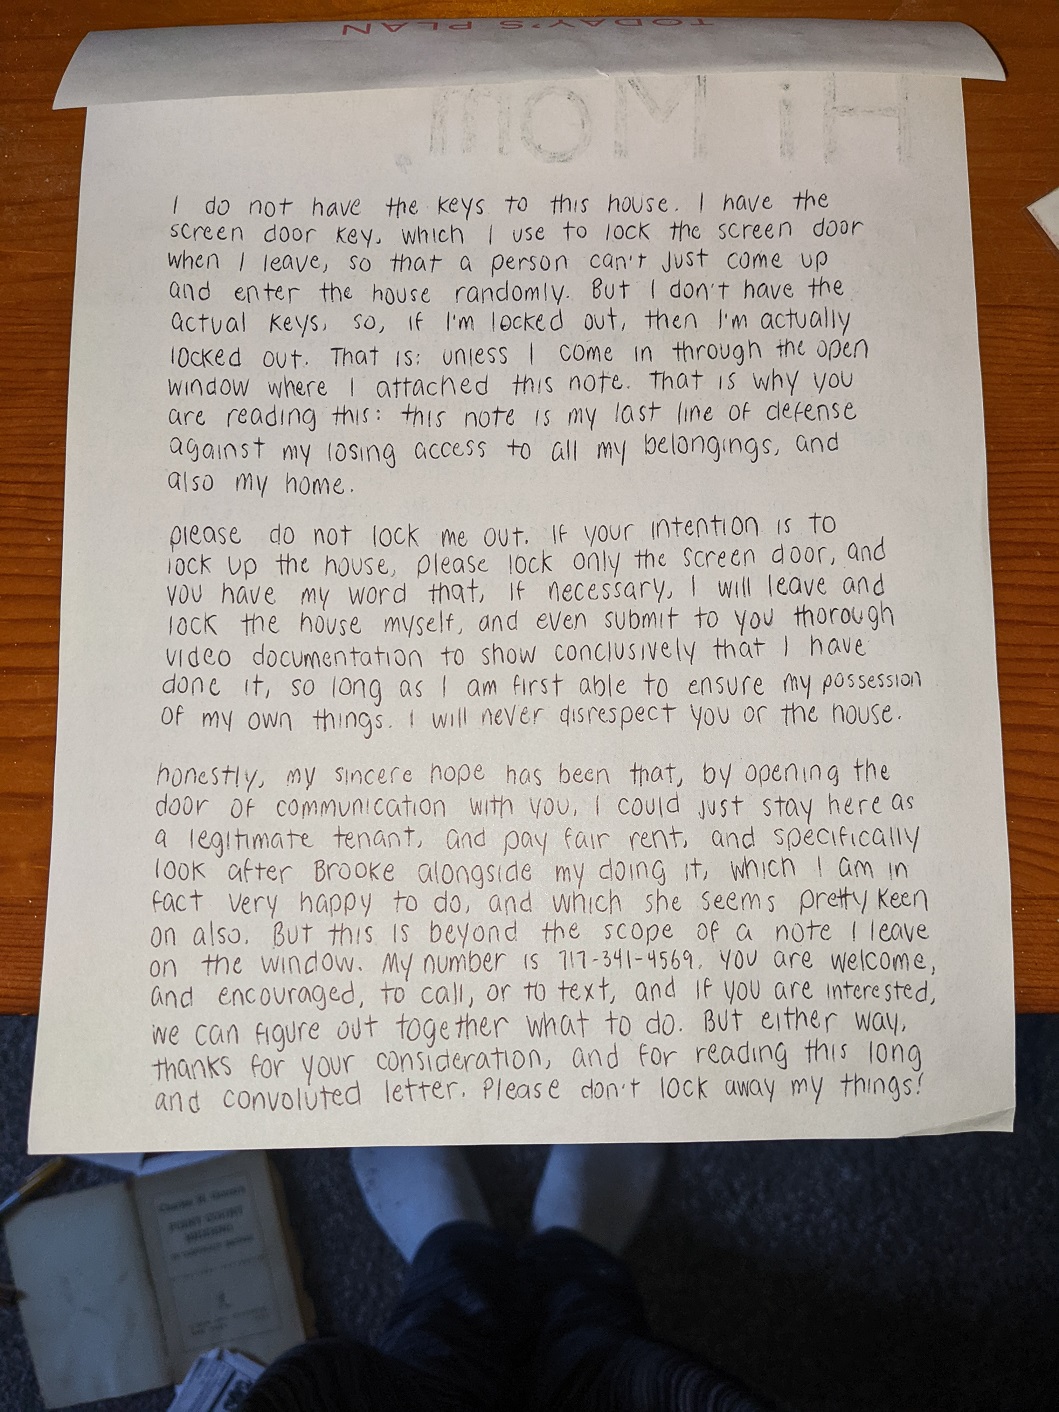 TODAY'S PLAN
Hi Mom,
I do not have the keys to this house. I have the
screen door key, which I use to lock the screen door
when I leave, so that a person can't just come up
and enter the house randomly. But I don't have the
actual keys, so, if I'm locked out, then I'm actually
locked out. That is: unless I come in through the open
window where I attached this note. That is why you
are reading this: this note is my last line of defense
against my losing access to all my belongings, and
also my home.
Please do not lock me out. If your intention is to
lock up the house, please lock only the screen door, and
you have my word that, if necessary, I will leave and
lock the house myself, and even submit to you thorough
video documentation to show conclusively that I have
done it, so long as I am first able to ensure my possession
of my own things. I will never disrespect you or the house.
honestly, my sincere hope has been that, by opening the
door of communication with you, I could just stay here as
a legitimate tenant, and pay fair rent, and specifically
look after Brooke alongside my doing it, which I am in
fact very happy to do, and which she seems pretty keen
on also. But this is beyond the scope of a note I leave
on the window. My number is 717-341-4569. You are welcome,
and encouraged, to call, or to text, and if you are interested,
we can figure out together what to do. But either way,
thanks for your consideration, and for reading this long
and convoluted letter. Please don't lock away my things!
POINT COUNT
BIDDING